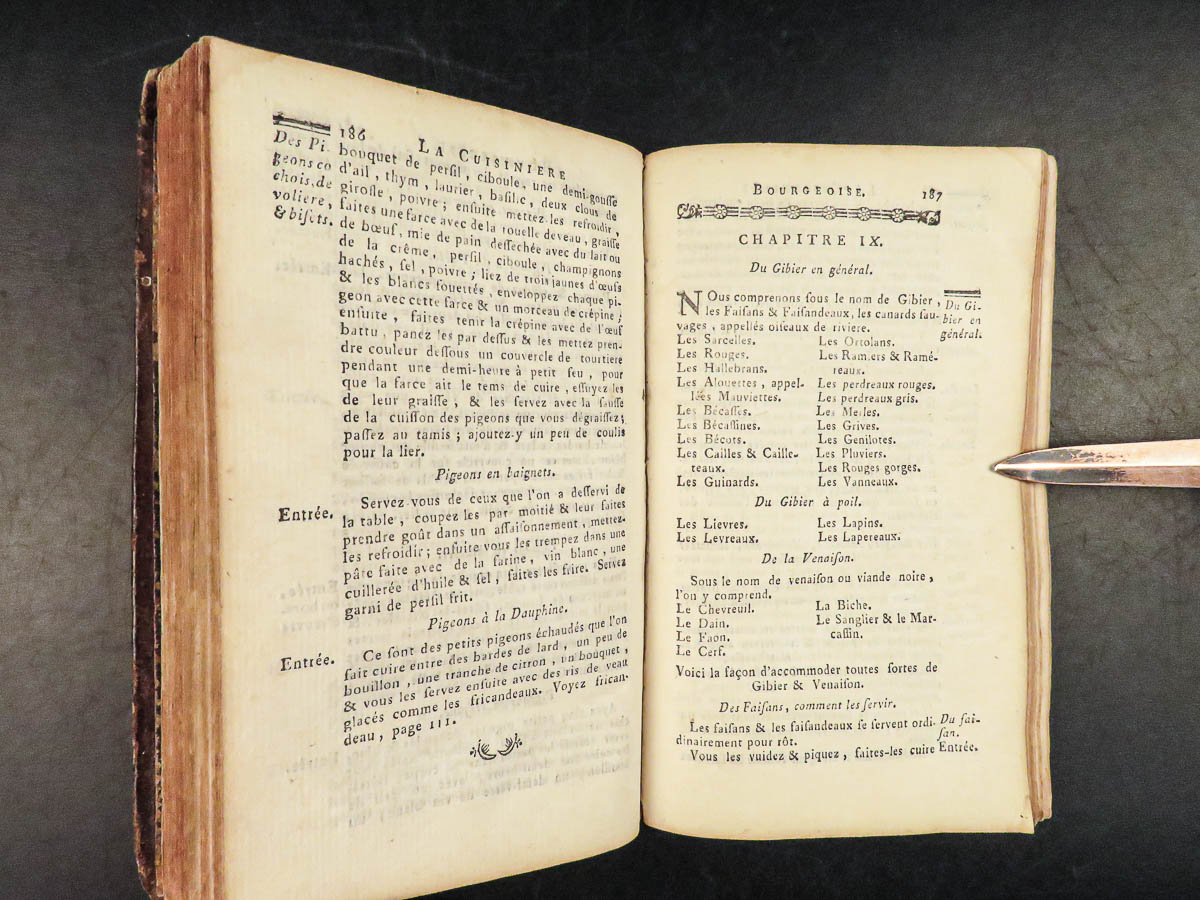 186 LA CUISINIERE
Des Pi-
geons co
chois, de
voliere,
& bisets.
bouquet de persil, ciboule, une demi-gousse
d'ail, thym, laurier, basilic, deux clous de
girofle, poivre; ensuite mettez-les refroidir,
faites une farce avec de la rouelle de veau, graisse
de bœuf, mie de pain dessechée avec du lait ou
de la crême, persil, ciboule, champignons
hachés, sel, poivre; liez de trois jaunes d'œufs
& les blancs fouettés, enveloppez chaque pi-
geon avec cette farce & un morceau de crépine;
ensuite, faites tenir la crépine avec de l'œuf
battu, panez les par dessus & les mettez pren-
dre couleur dessous un couvercle de tourtiere
pendant une demi-heure à petit feu, pour
que la farce ait le tems de cuire, essuyez les
de leur graisse, & les servez avec la sausse
de la cuisson des pigeons que vous dégraissez;
passez au tamis; ajoutez-y un peu de coulis
pour la lier.
Pigeons en baignets.
Entrée.
Servez-vous de ceux que l'on a desservi de
la table, coupez les par moitié & leur faites
prendre goût dans un assaisonnement, mettez-
les refroidir; ensuite vous les trempez dans une
pâte faite avec de la farine, vin blanc, une
cuillerée d'huile & sel, faites les frire. Servez
garni de persil frit.
Pigeons à la Dauphine.
Entrée.
Ce sont des petits pigeons échaudés que l'on
fait cuire entre des bardes de lard, un peu de
bouillon, une tranche de citron, un bouquet,
& vous les servez ensuite avec des ris de veau
glacés comme les fricandeaux. Voyez frican-
deau, page 111.
BOURGEOISE. 187
CHAPITRE IX.
Du Gibier en général.
NOus comprenons sous le nom de Gibier,
les Faisans & Faisandeaux, les canards sau-
vages, appellés oiseaux de riviere.
Du Gi-
bier en
général.
Les Sarcelles.
Les Rouges.
Les Hallebrans.
Les Alouettes, appel-
lées Mauviettes.
Les Bécasses.
Les Bécassines.
Les Bécots.
Les Cailles & Caille-
teaux.
Les Guinards.
Les Ortolans.
Les Ramiers & Ramé-
reaux.
Les perdreaux rouges.
Les perdreaux gris.
Les Merles.
Les Grives.
Les Genilotes.
Les Pluviers.
Les Rouges gorges.
Les Vanneaux.
Du Gibier à poil.
Les Lievres.
Les Levreaux.
Les Lapins.
Les Lapereaux.
De la Venaison.
Sous le nom de venaison ou viande noire,
l'on y comprend.
Le Chevreuil.
Le Dain.
Le Faon.
Le Cerf.
La Biche.
Le Sanglier & le Mar-
cassin.
Voici la façon d'accommoder toutes sortes de
Gibier & Venaison.
Des Faisans, comment les servir.
Les faisans & les faisandeaux se servent ordi-
dinairement pour rôt.
Vous les vuidez & piquez, faites-les cuire
Du fai-
san.
Entrée.